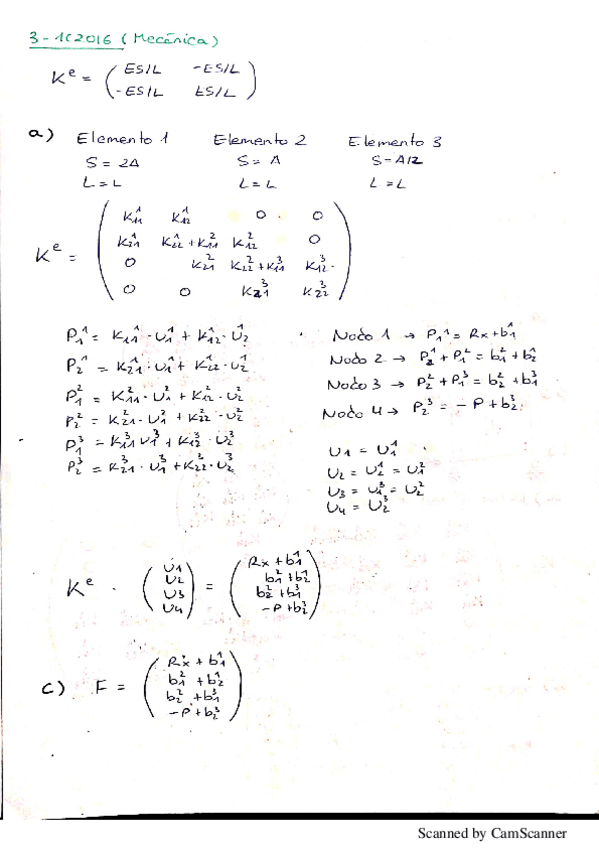 3 - 1C2016 (Mecánica)
K^e = ( ES/L -ES/L
-ES/L ES/L )
a) Elemento 1 Elemento 2 Elemento 3
S = 2A S = A S = A/2
L = L L = L L = L
K^e = ( K_11^1 K_12^1 0 0
K_21^1 K_22^1 + K_11^2 K_12^2 0
0 K_21^2 K_22^2 + K_11^3 K_12^3
0 0 K_21^3 K_22^3 )
P_1^1 = K_11^1 · U_1^1 + K_12^1 · U_2^1
P_2^1 = K_21^1 · U_1^1 + K_22^1 · U_2^1
P_1^2 = K_11^2 · U_1^2 + K_12^2 · U_2^2
P_2^2 = K_21^2 · U_1^2 + K_22^2 · U_2^2
P_1^3 = K_11^3 U_1^3 + K_12^3 · U_2^3
P_2^3 = K_21^3 · U_1^3 + K_22^3 · U_2^3
Nodo 1 → P_1^1 = Rx + b_1^1
Nodo 2 → P_2^1 + P_1^2 = b_1^2 + b_2^1
Nodo 3 → P_2^2 + P_1^3 = b_2^2 + b_1^3
Nodo 4 → P_2^3 = - P + b_2^3
U1 = U_1^1
U2 = U_2^1 = U_1^2
U3 = U_1^3 = U_2^2
U4 = U_2^3
K^e · ( U1 U2 U3 U4 ) = ( Rx + b_1^1
b_1^2 + b_2^1
b_2^2 + b_1^3
-P + b_2^3 )
c) F = ( Rx + b_1^1
b_1^2 + b_2^1
b_2^2 + b_1^3
-P + b_2^3 )
Scanned by CamScanner